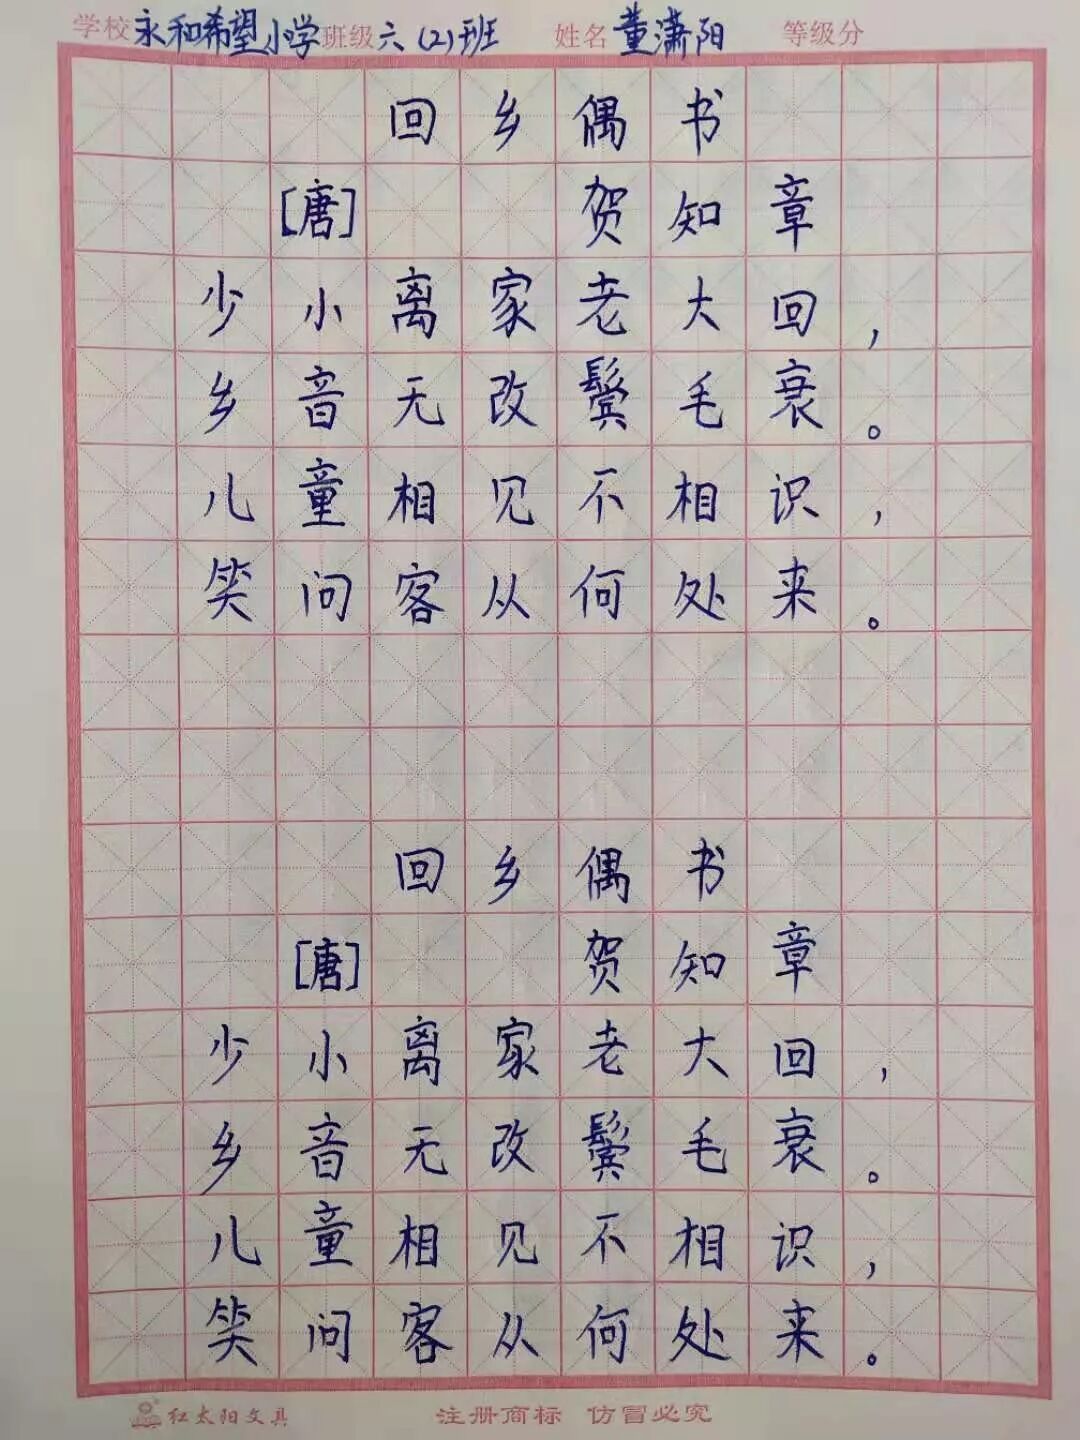 学校永和希望小学班级六(2)班 姓名董潇阳 等级分
回乡偶书
[唐] 贺知章
少小离家老大回，
乡音无改鬓毛衰。
儿童相见不相识，
笑问客从何处来。
回乡偶书
[唐] 贺知章
少小离家老大回，
乡音无改鬓毛衰。
儿童相见不相识，
笑问客从何处来。
红太阳文具 注册商标 仿冒必究